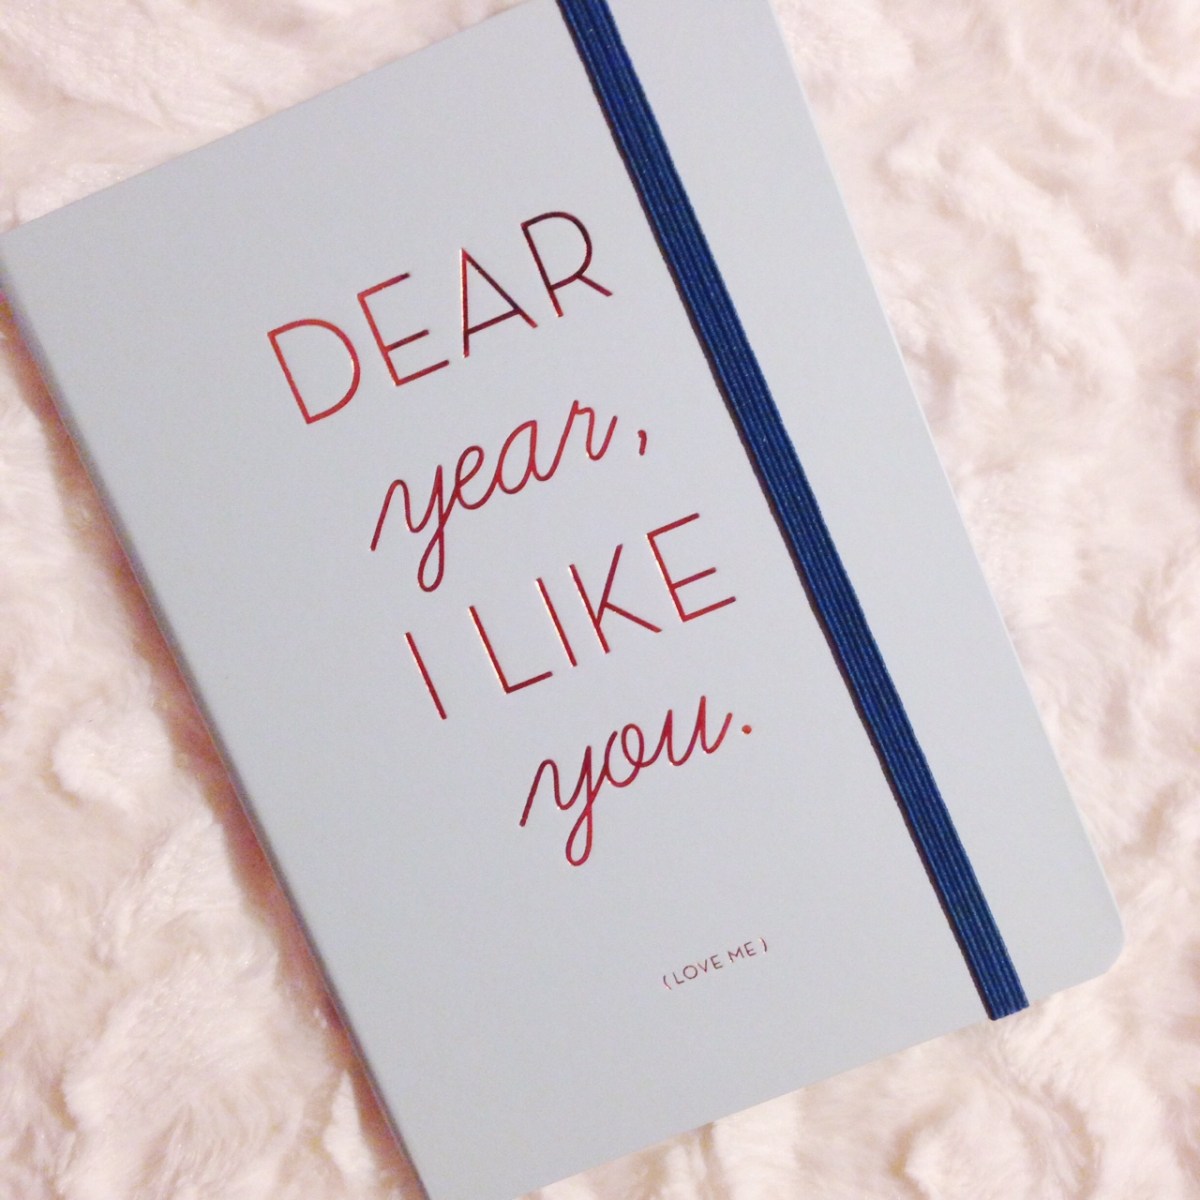 DEAR
year,
I LIKE
you.
(LOVE ME)